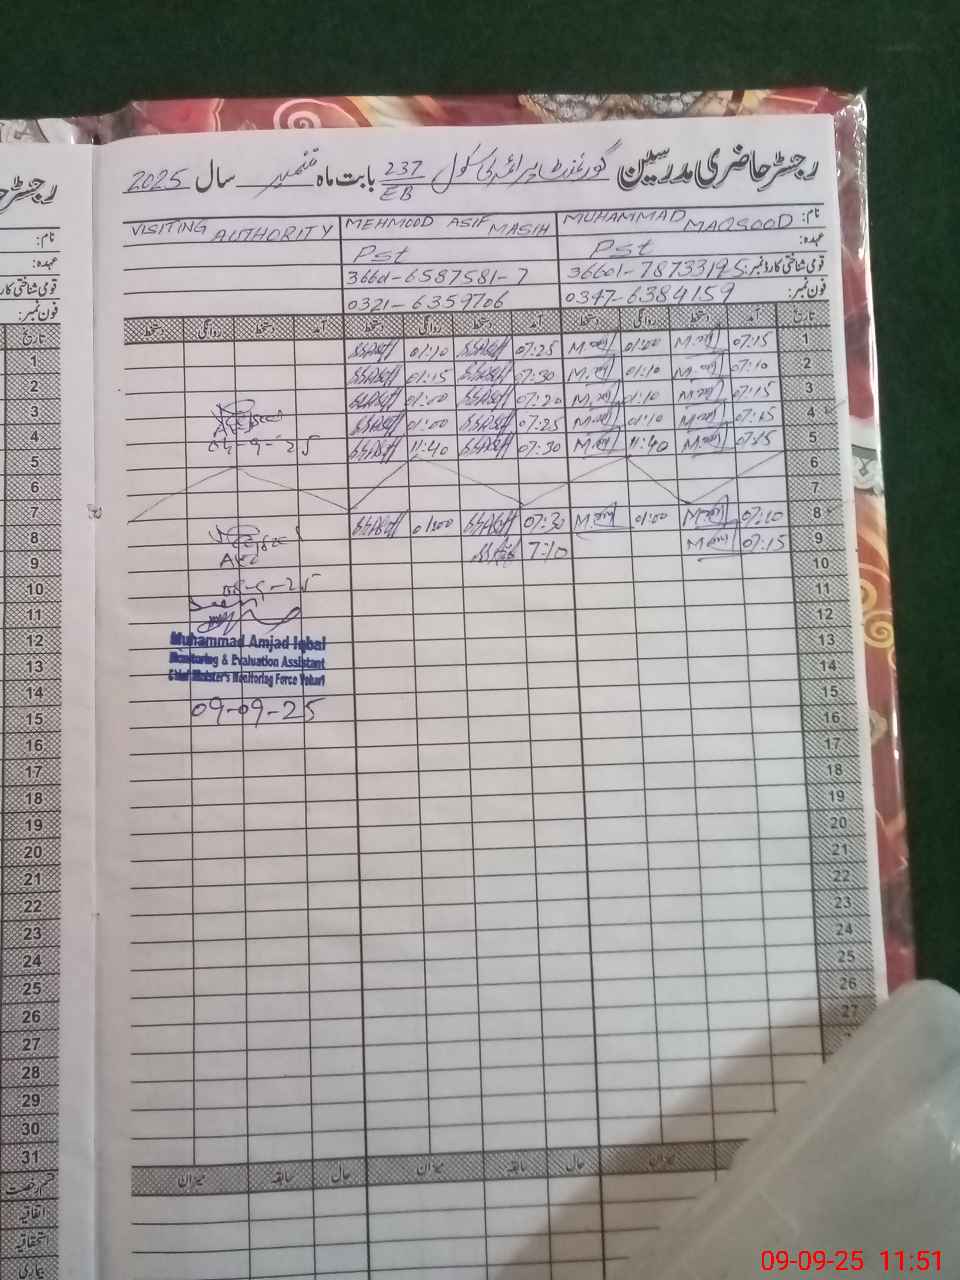 رجسٹر حاضری مدرسین گورنمنٹ پرائمری سکول 237/EB بابت ماہ ستمبر سال 2025
نام: MUHAMMAD MAQSOOD MEHMOOD ASIF MASIH VISITING AUTHORITY
عہدہ: Pst Pst
قومی شناختی کارڈ نمبر: 36601-7873319-5 36601-6587581-7
فون نمبر: 0347-6384159 0321-6359706
تاریخ آمد دستخط روانگی دستخط آمد دستخط روانگی دستخط آمد دستخط روانگی دستخط
1 07:15 01:00 07:25 01:10
2 07:10 01:10 07:30 01:15
3 07:15 01:10 07:20 01:00
4 07:15 01:10 07:25 01:00
5 07:15 11:40 07:30 11:40
04-9-25
6
7
8 07:10 01:00 07:30 01:00
9 07:15 7:10
08-9-25
10
11
12
13
14
15
16
17
18
19
20
21
22
23
24
25
26
27
Muhammad Amjad Iqbal
Monitoring & Evaluation Assistant
Chief Minister's Monitoring Force Vehari
09-09-25
میزان حال سابقہ میزان حال سابقہ میزان
رجسٹر
نام:
عہدہ:
قومی شناختی کارڈ
فون نمبر:
تاریخ
1
2
3
4
5
6
7
8
9
10
11
12
13
14
15
16
17
18
19
20
21
22
23
24
25
26
27
28
29
30
31
قسم رخصت
اتفاقیہ
استحقاقیہ
بیماری
09-09-25 11:51